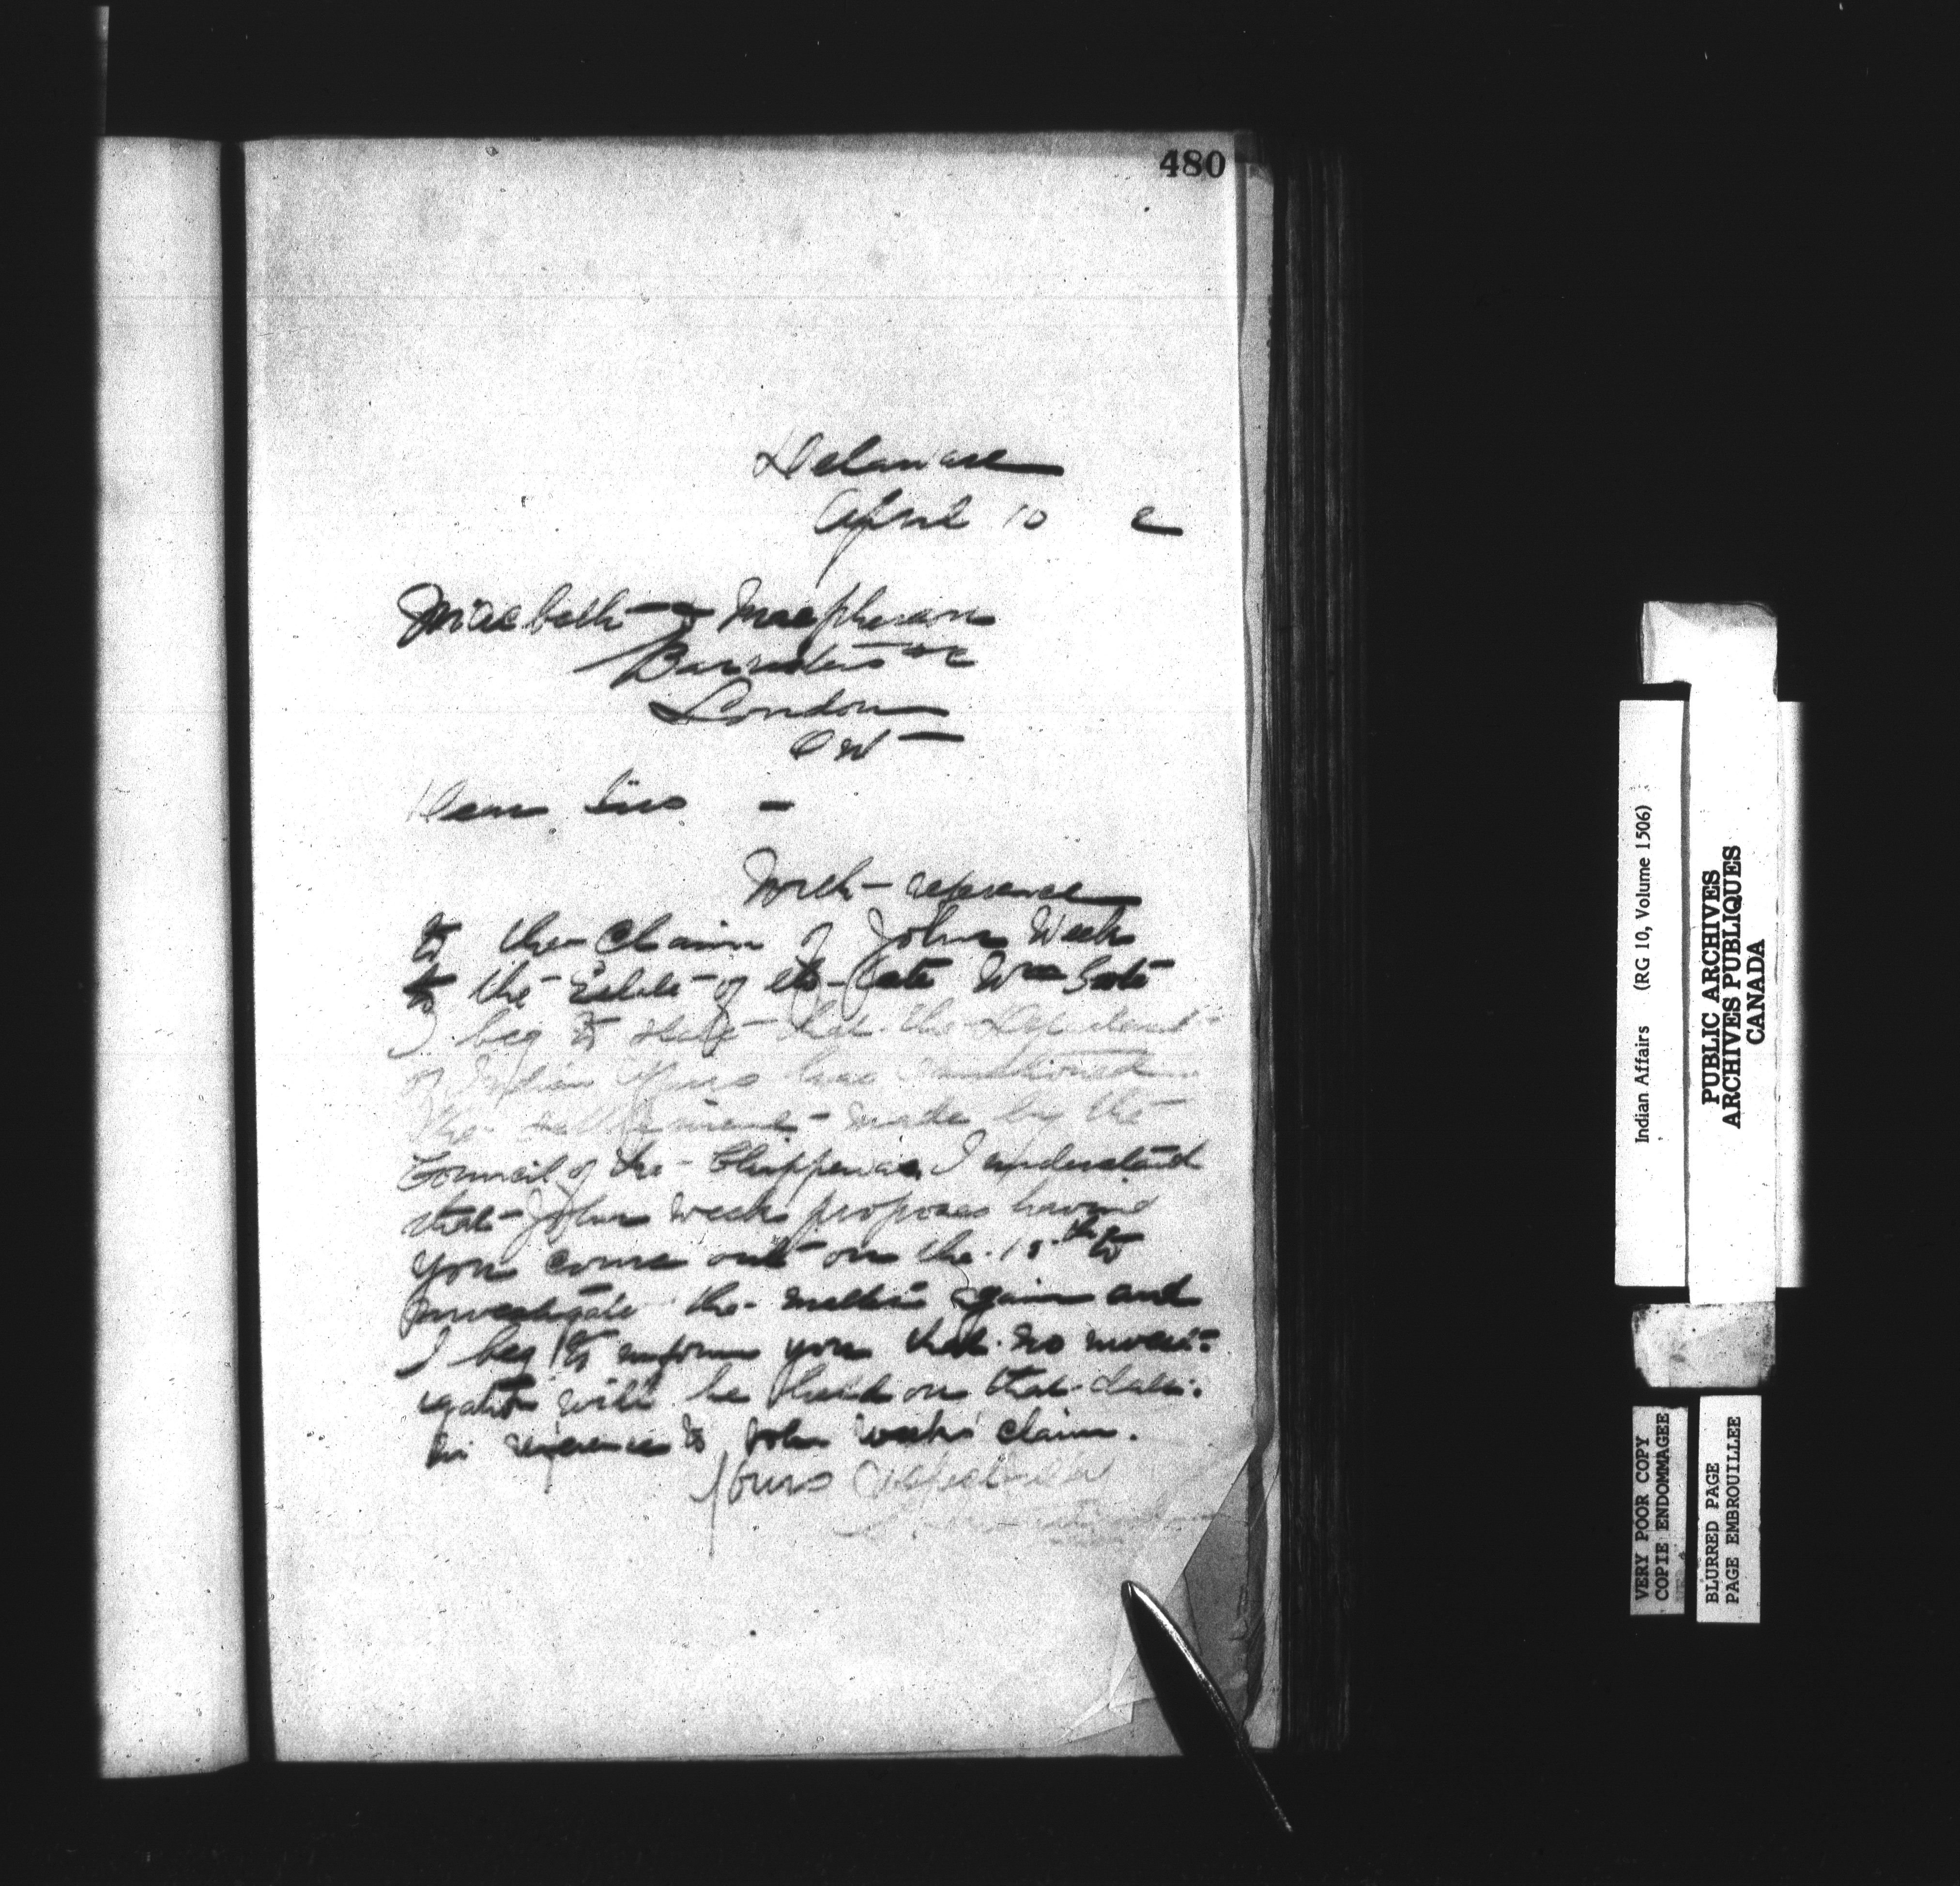 480
Delaware
April 10
Macbeth & Macpherson
Barristers &c
London
Ont
Dear Sirs -
With reference
to the Claim of John Week
to the Estate of the late Wm
I beg to state that the Department
of Indian Affairs have sanctioned
the settlement made by the
Council of the Chippewas, I understand
that John Week proposes having
you come out on the to
investigate the matter again and
I beg to inform you that no investi-
gation will be held on that date
in reference to John Weeks claim.
Yours respectfully
Indian Affairs (RG 10, Volume 1506)
PUBLIC ARCHIVES
ARCHIVES PUBLIQUES
CANADA
VERY POOR COPY
COPIE ENDOMMAGEE
BLURRED PAGE
PAGE EMBROUILLEE